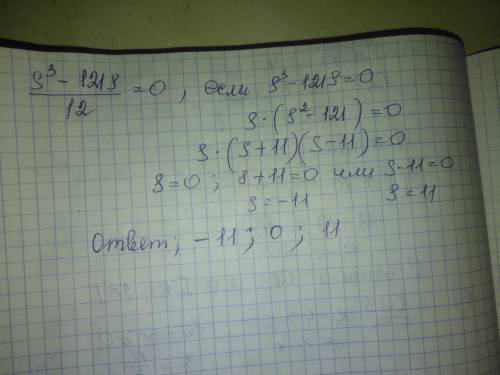 (s³ - 121s)/12 = 0, если s³ - 121s = 0
s · (s² - 121) = 0
s · (s + 11)(s - 11) = 0
s = 0 ; s + 11 = 0 или s - 11 = 0
s = -11 s = 11
Ответ ; -11 ; 0 ; 11